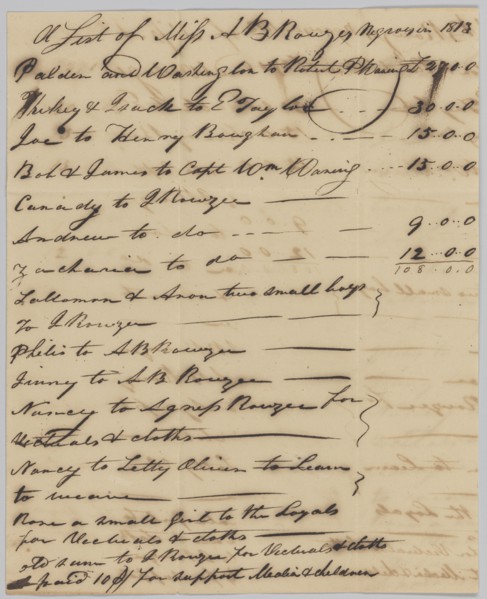 A List of Miss A B Rouzes Negroes in 1813
Palden and Washington to Robert P Waring 27..0..0
& Isack to E Taylor 30..0..0
Joe to Henry Boughan 15..0..0
Bob & James to Capt Wm Waring 15..0..0
Canady to J Rouzee
Andrew to do 9..0..0
Zacharia to do 12..0..0
108..0..0
Sollomon & Aron two small boys
To J Rouzee
Philis to A B Rouzee
Jinny to A B Rouzee
Nancy to Agness Rouzee for
Victuals & cloths
Nancy to Letty Oliver to Learn
to weave
Rose a small Girl to the Loyals
for Vectuals & cloths
old to J Rouzee for Vectuals & cloths
paid 10 for support Media & children